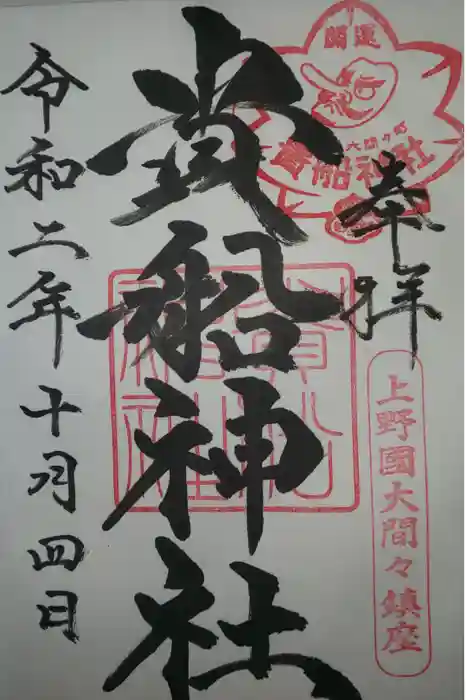 開運
大間々町
貴船神社
奉拝
上野國大間々鎮座
貴船神社
令和二年十月四日